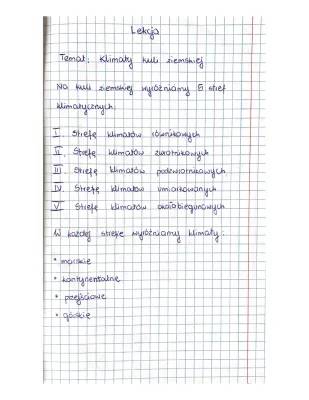 Lekcja
Temat: Klimaty kuli ziemskiej
Na kuli ziemskiej wyróżniamy 5 stref
klimatycznych:
I. Strefę klimatów równikowych
II. Strefę klimatów zwrotnikowych
III. Strefę klimatów podzwrotnikowych
IV. Strefę klimatów umiarkowanych
V Strefę klimatów okołobiegunowych
W każdej strefie wyróżniamy klimaty:
• morskie
• kontynentalne
• przejściowe
• górskie